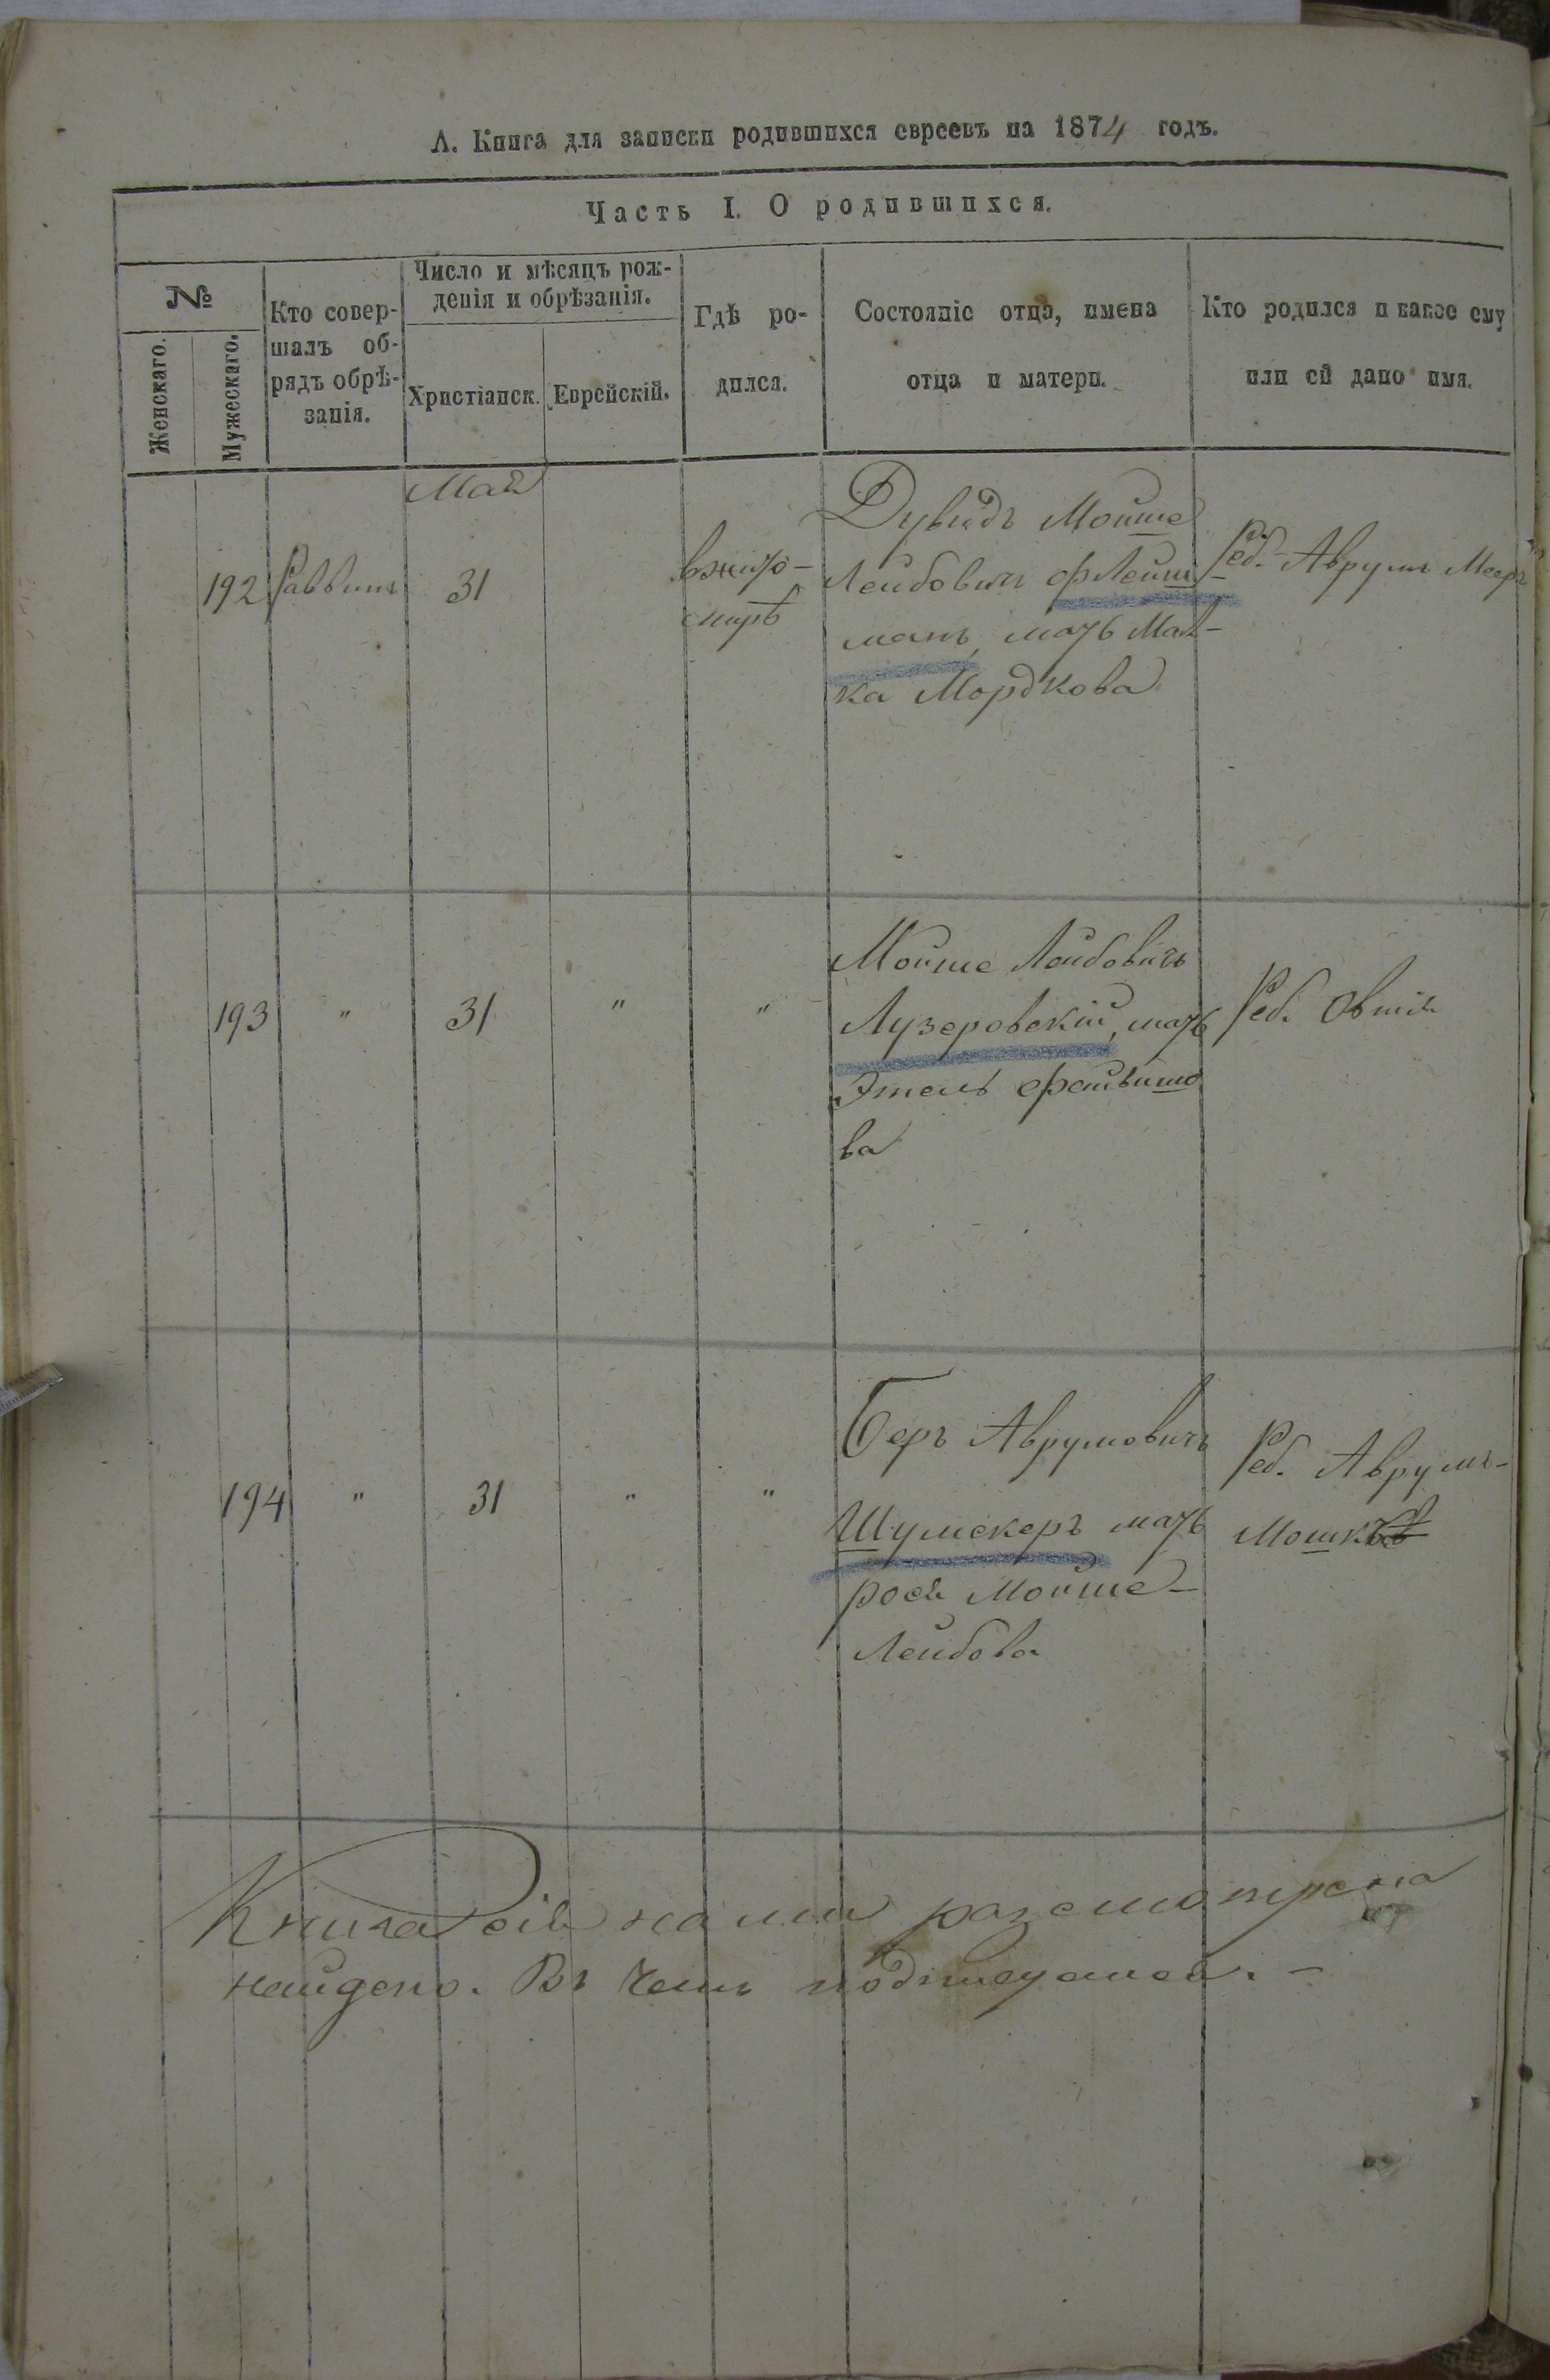 А. Книга для записки родившихся евреевъ на 1874 годъ.
Часть I. О родившихся.
№
Женскаго.
Мужескаго.
Кто совер-
шалъ об-
рядъ обрѣ-
занія.
Число и мѣсяцъ рож-
денія и обрѣзанія.
Христіанск.
Еврейскій.
Гдѣ ро-
дился.
Состояніе отца, имена
отца и матери.
Кто родился и какое ему
или ей дано имя.
Мая
192
Раввинъ
31
вжито-
мирѣ
Дувидъ Мойше
Лейбовичъ Флейш-
манъ, мать Мал-
ка Мордкова
Реб. Аврумъ Мееръ
193
"
31
"
"
Мойше Лейбовичъ
Лузеровскій, мать
Этель Файвишо
ва
Реб. Овшія
194
"
31
"
"
Беръ Аврумовичъ
Шумскеръ мать
Рося Мойше-
Лейбова
Реб. Аврумъ-
Мошкъ
Книга сія нами разсмотрена
найдено. Въ чемъ подписуемся. -